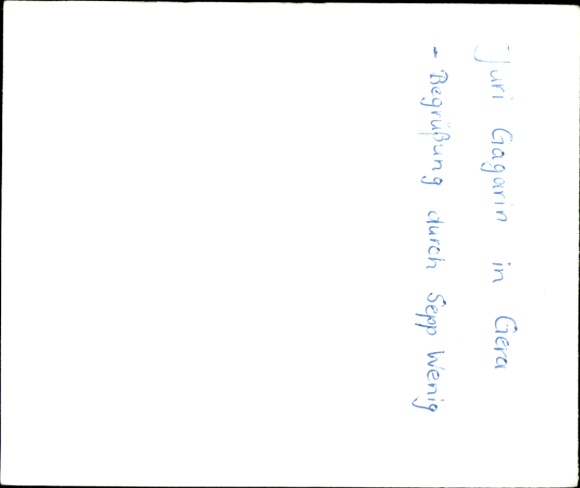 Juri Gagarin in Gera
- Begrüßung durch Sepp Wenig